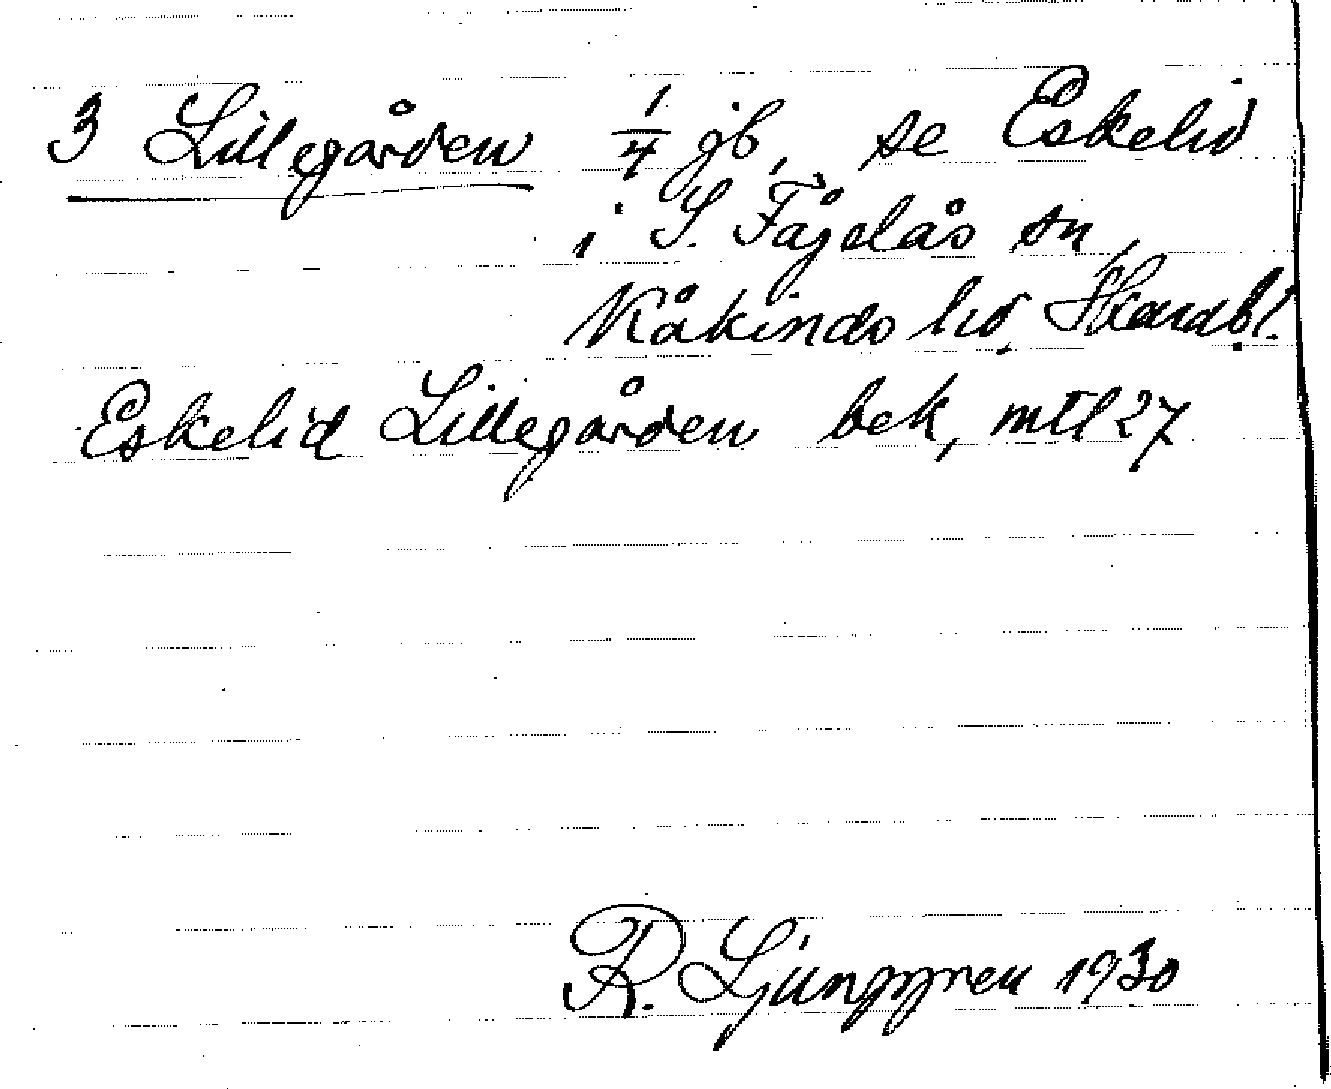 3 Lillegården 1/4 jb, se Eskelid
i S. Fågelås sn,
Kåkinds hd. Skarabl.
Eskelid Lillegården bek, mtl 27
R. Ljunggren 1930